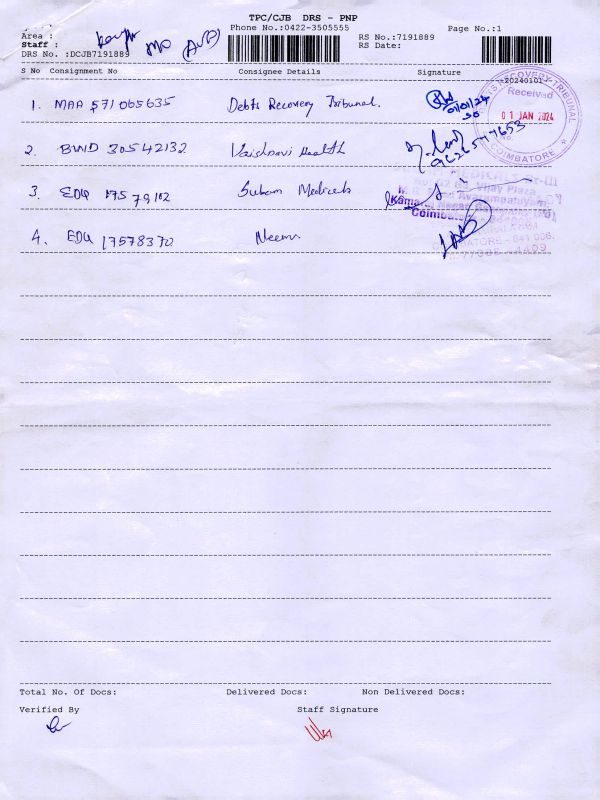 TPC/CJB DRS - PNP
Phone No.:0422-3505555
Page No.:1
Area :
Staff :
DRS No. :DCJB7191889
RS No.:7191889
RS Date:
S No Consignment No Consignee Details Signature
20240101
1. MAA 571065635 Debts Recovery Tribunal.
01/01/24
Received
01 JAN 2024
COIMBATORE
2. BWD 30542132 Vaishnavi Health
9626547653
3. EDQ 17579102 Subam Medicals
Vijay Plaza
4. EDQ 17578370 Neem
Total No. Of Docs: Delivered Docs: Non Delivered Docs:
Verified By Staff Signature